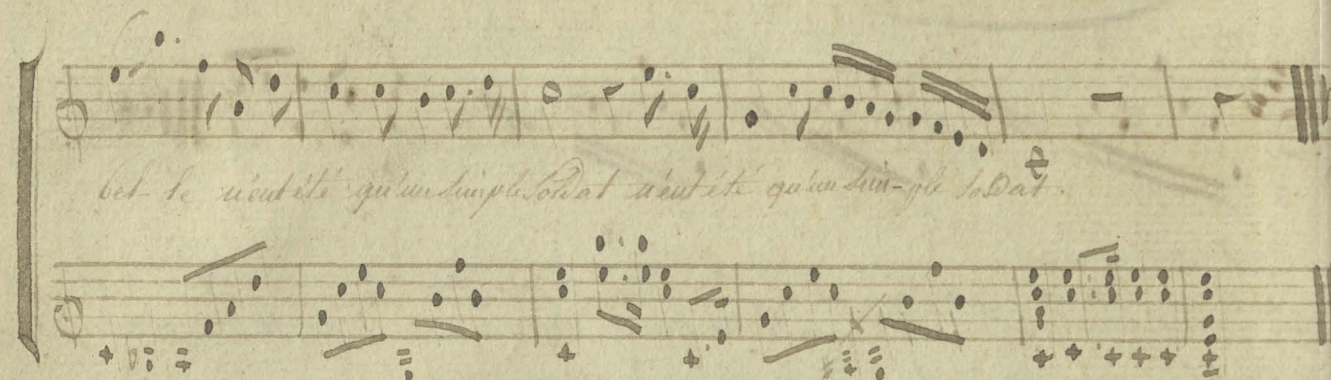 bel- le n'eut été qu'un simple Soldat n'eut été qu'un sim-ple soldat.